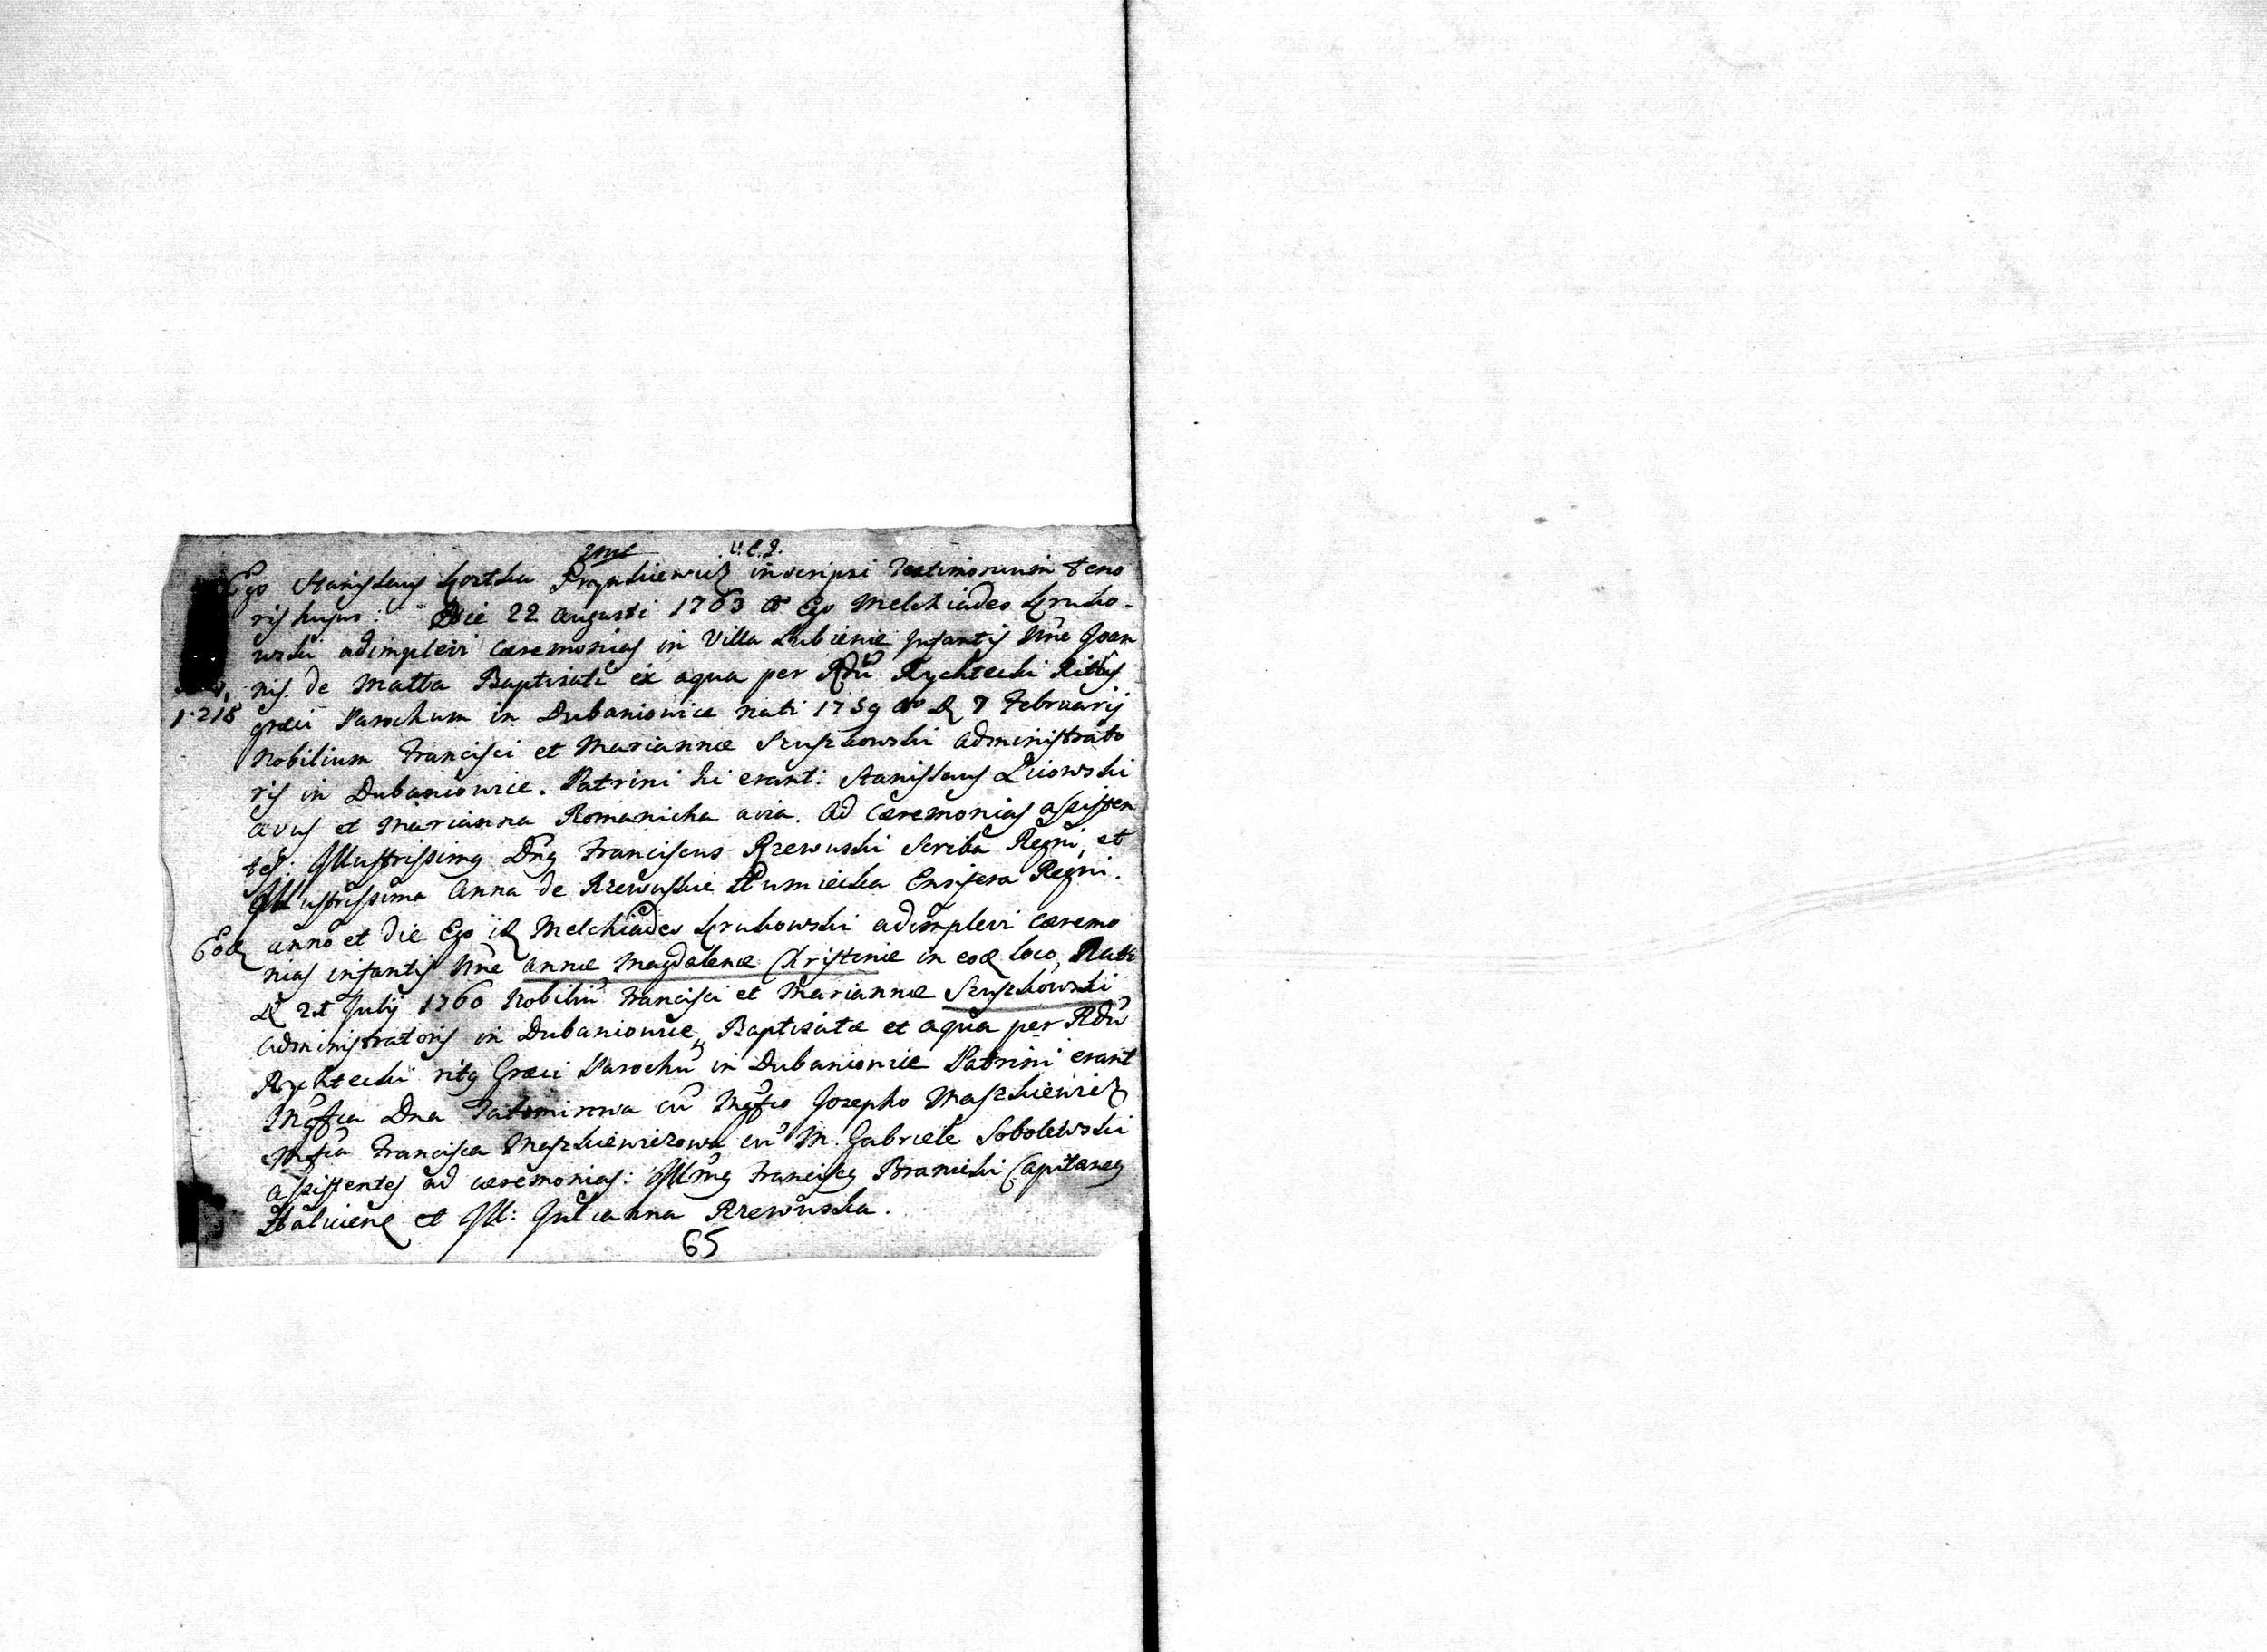 V. C. L.
Ego Stanislaus Kostka Frynkiewicz inscripsi testimonium teno
ris hujus: Die 22 Augusti 1763 Ego Melchiades Kruko-
wski adimplevi caeremonias in Villa Lubienie Infantis Nne Joan
nis de Matta Baptisati ex aqua per Rdū Rychtecki Ritūs
graeci Parochum in Dubaniowice nati 1759 Ao D 7 Februarij
Nobilium Francisci et Mariannae Szuszkowski administrato
ris in Dubaniowice. Patrini hi erant: Stanislaus Lwowski
avus et Marianna Romanicka avia. Ad caeremonias assisten
tes: Illustrissimg Dng Franciscus Rzewuski Scriba Regni, et
Illustrissima Anna de Rzewuskie Humiecka Ensifera Regni.
Eod anno et die Ego id Melchiades Krukowski adimplevi caeremo
nias infantis Nne Annae Magdalenae Christinae in eod loco, Natae
D 21 Julij 1760 Nobiliū Francisci et Mariannae Szuszkowski
administratoris in Dubaniowice, Baptisatae et aqua per Rdū
Rychtecki ritg Graeci Parochū in Dubaniowice Patrini erant
Mgfca Dna Tatomirowa cū Mgfco Josepho Maszkiewicz
Mgfca Francisca Maszkiewiczowa cū M. Gabriele Sobolewski
assistentes ad caeremonias: Illmg Franciscg Branicki Capitaneg
Halicien et Ill: Julianna Rzewuska.
65